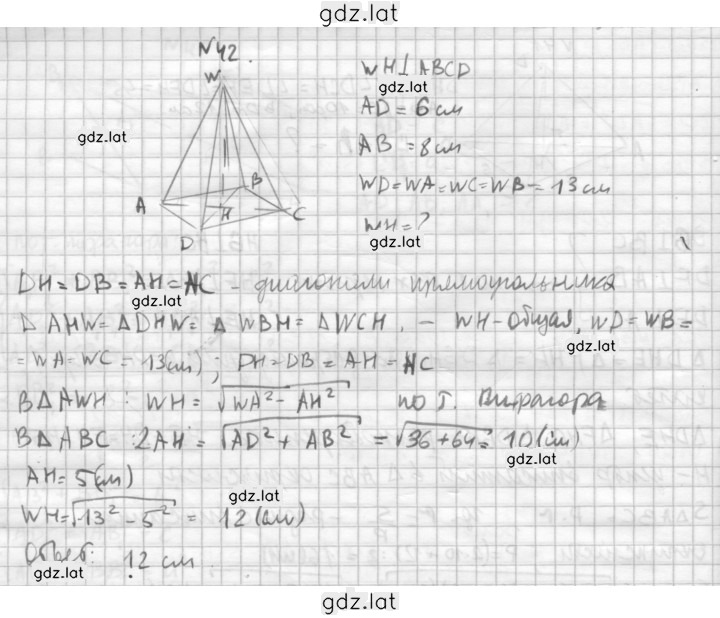 gdz.lat
N42.
W
WH⊥ABCD
gdz.lat
AD = 6 см
gdz.lat
AB = 8 см
WD=WA=WC=WB= 13 см
WH = ?
gdz.lat
A B H D C
DH = DB = AH = HC - диагонали прямоугольника
gdz.lat
Δ AHW = Δ DHW = Δ WBH = Δ WCH. — WH-общая, WD = WB =
gdz.lat
= WA = WC = 13(см); DH = DB = AH = HC
В Δ AWH : WH = √WA² - AH² по т. Пифагора
В Δ ABC : 2AH = √AD² + AB² = √36+64 = 10(см)
gdz.lat
AH = 5(см)
gdz.lat
WH = √13² - 5² = 12 (см)
Ответ: 12 см
gdz.lat
gdz.lat